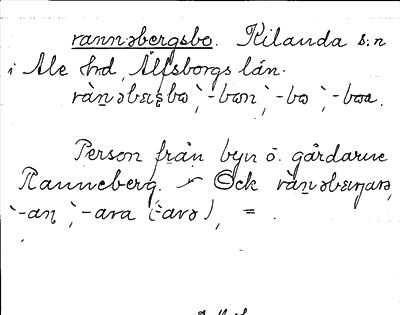 rannəbergsbo. Kilanda s:n
i Ale hrd, Älfsborgs län.
ràn̠əbɛrsbω, `-bωn, `-bω, `-bωa.
Person från byn o. gårdarne
Ranneberg. – Ock ràn̠əbɛrjarə,
`-aṇ, `-ara (`-arə), = .